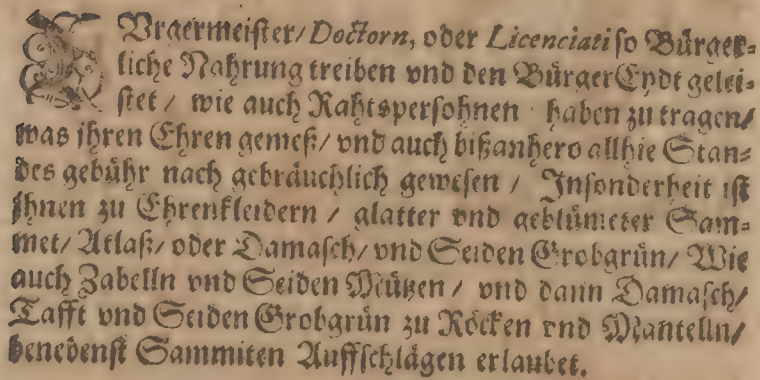 BUrgermeister/ Doctorn, oder Licenciati so Bürger-
liche Nahrung treiben vnd den BürgerEydt gelei-
stet / wie auch Rahtspersohnen haben zu tragen/
was ihren Ehren gemeß/ vnd auch bißanhero allhie Stan-
des gebühr nach gebräuchlich gewesen / Insonderheit ist
ihnen zu Ehrenkleidern / glatter vnd geblümeter Sam-
met/ Atlaß/ oder Damasch/ vnd Seiden Grobgrün/ Wie
auch Zabelln vnd Seiden Mützen / vnd dann Damasch/
Tafft vnd Seiden Grobgrün zu Röcken vnd Mantelln/
benebenst Sammiten Auffschlägen erlaubet.